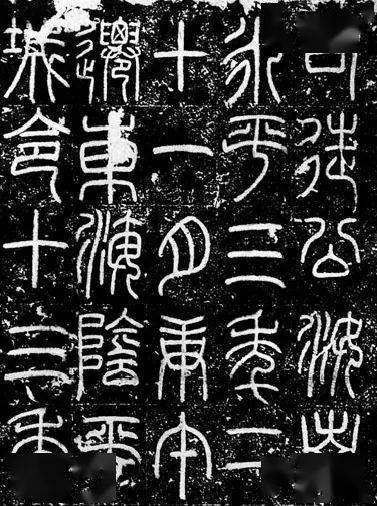 司徒公汝南
永平三年二
十一月庚午
遷東海陰平
城令十三年